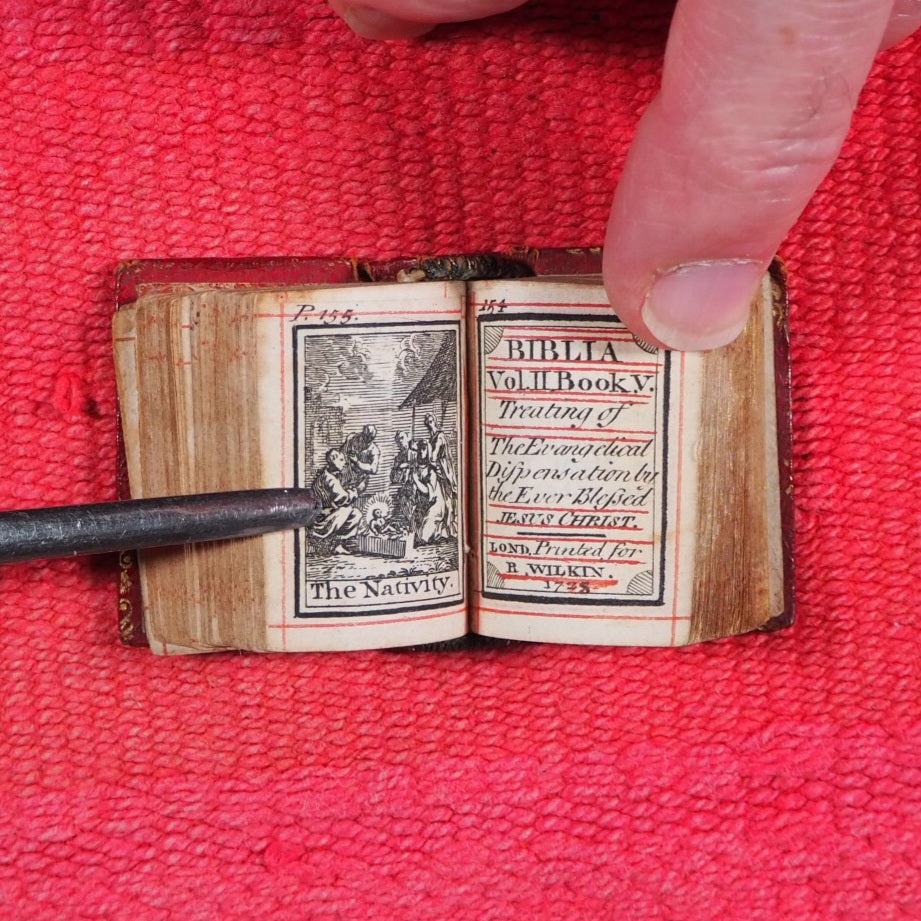 P. 155.
The Nativity.
154
BIBLIA
Vol.II Book V.
Treating of
The Evangelical
Diſpensation by
the Ever Bleſsed
JESUS CHRIST.
LOND, Printed for
R. WILKIN.
1728